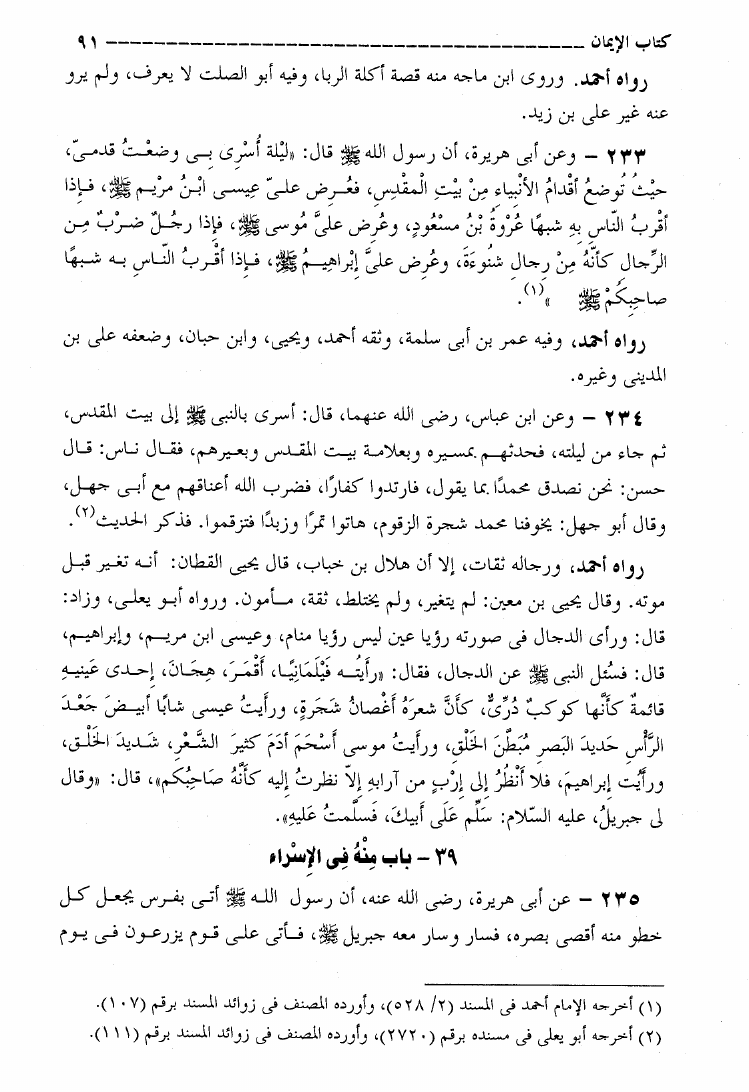 كتاب الإيمان ــــــــــــــــــــــــــــــــــــــــ ٩١
رواه أحمد. وروى ابن ماجه منه قصة أكلة الربا، وفيه أبو الصلت لا يعرف، ولم يرو
عنه غير على بن زيد.
٢٣٣ – وعن أبى هريرة، أن رسول الله ﷺ قال: «ليْلة أُسْرِى بِى وضعْتُ قدمىّ،
حيْثُ تُوضعُ أقدامُ الأنْبياءِ مِنْ بيْتِ الْمقْدِسِ، فعُرِض علىّ عِيسى ابْنُ مرْيم ﷺ، فإذا
أقْربُ النّاسِ بِهِ شبهًا عُرْوةُ بْنُ مسْعُودٍ، وعُرِض علىَّ مُوسى ﷺ، فإذا رجُلٌ ضرْبٌ مِن
الرِّجالِ كأنَّهُ مِنْ رِجالِ شنُوءَةَ، وعُرِض علىَّ إبْراهِيمُ ﷺ، فإذا أقْربُ النّاسِ بِه شبهًا
صاحِبكُمْ ﷺ »(١).
رواه أحمد، وفيه عمر بن أبى سلمة، وثقه أحمد، ويحيى، وابن حبان، وضعفه على بن
المدينى وغيره.
٢٣٤ – وعن ابن عباس، رضى الله عنهما، قال: أسرى بالنبى ﷺ إلى بيت المقدس،
ثم جاء من ليلته، فحدثهم بمسيره وبعلامة بيت المقدس وبعيرهم، فقال ناس: قال
حسن: نحن نصدق محمدًا بما يقول، فارتدوا كفارًا، فضرب الله أعناقهم مع أبى جهل،
وقال أبو جهل: يخوفنا محمد شجرة الزقوم، هاتوا تمرًا وزبدًا فتزقموا. فذكر الحديث(٢).
رواه أحمد، ورجاله ثقات، إلا أن هلال بن خباب، قال يحيى القطان: أنه تغير قبل
موته. وقال يحيى بن معين: لم يتغير، ولم يختلط، ثقة، مأمون. ورواه أبو يعلى، وزاد:
قال: ورأى الدجال فى صورته رؤيا عين ليس رؤيا منام، وعيسى ابن مريم، وإبراهيم،
قال: فسُئل النبى ﷺ عن الدجال، فقال: «رأيتُه فَيْلَمانيًا، أقْمَرَ، هِجَانَ، إحدى عَينيهِ
قائمةٌ كأنَّها كوكبٌ دُرِّىٌّ، كأنَّ شعرَهُ أغْصانُ شجَرةٍ، ورأيتُ عيسى شابًا أبيضَ جَعْدَ
الرَّأْسِ حَديدَ البَصرِ مُبَطَّنَ الخَلْقِ، ورأيتُ موسى أسْحَمَ آدَمَ كثيرَ الشَّعْرِ، شَديدَ الخَلْقِ،
ورأيْت إبراهيمَ، فلا أَنْظُرُ إلى إرْبٍ من آرابهِ إلاّ نظرتُ إليه كأنَّهُ صَاحِبُكم»، قال: «وقال
لى جبريلُ، عليه السّلام: سَلِّم عَلَى أبيكَ، فَسلَّمتُ عَليهِ».
٣٩ – باب مِنْهُ فِى الإِسْراء
٢٣٥ – عن أبى هريرة، رضى الله عنه، أن رسول الله ﷺ أتى بفرس يجعل كل
خطو منه أقصى بصره، فسار وسار معه جبريل ﷺ، فأتى على قوم يزرعون فى يوم
(١) أخرجه الإمام أحمد فى المسند (٢/ ٥٢٨)، وأورده المصنف فى زوائد المسند برقم (١٠٧).
(٢) أخرجه أبو يعلى فى مسنده برقم (٢٧٢٠)، وأورده المصنف فى زوائد المسند برقم (١١١).